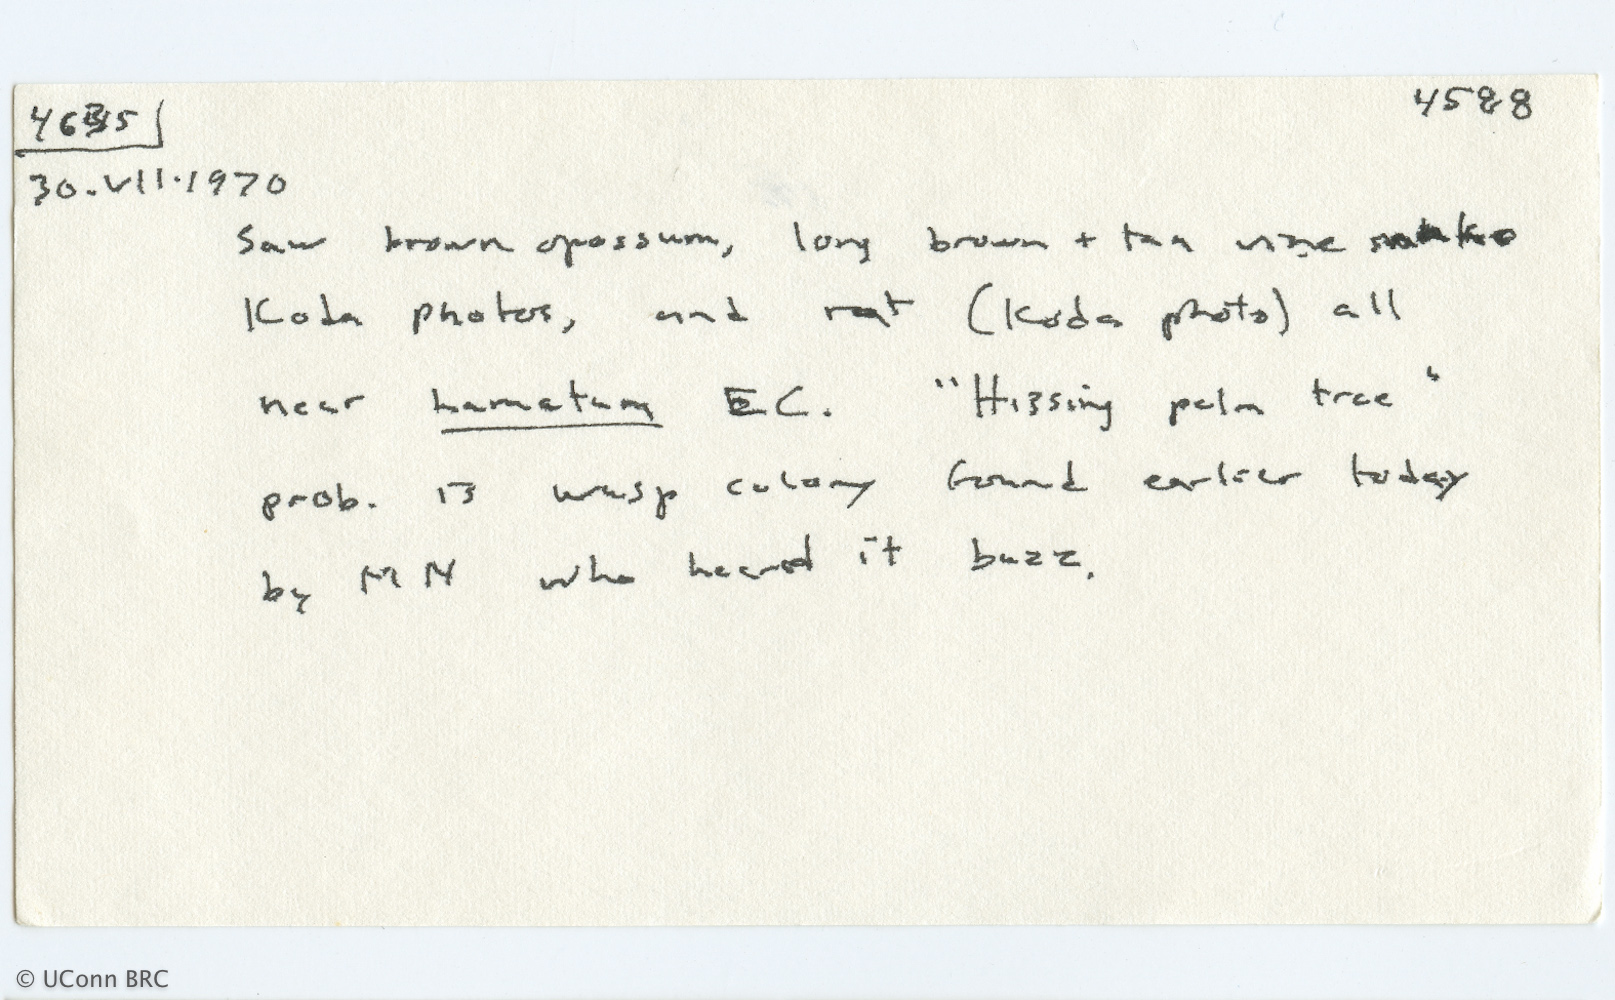 4588
30.VII.1970
Saw brown opossum, long brown + tan vine snake
Koda photos, and rat (Koda photo) all
near hamatum EC. "Hissing palm tree"
prob. is wasp colony found earlier today
by MN who heard it buzz.
© UConn BRC